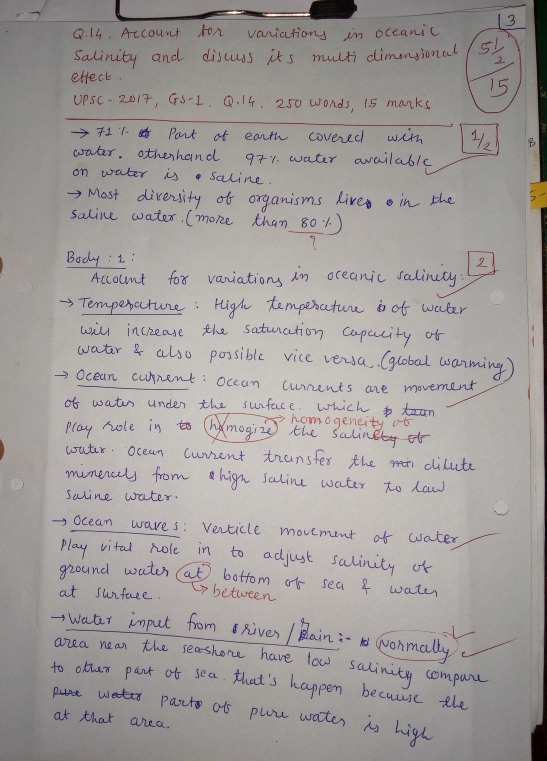 3
Q.14. Account for variations in oceanic
Salinity and discuss its multi dimensional
effect.
5 1/2
15
UPSC-2017, GS-1. Q.14. 250 words, 15 marks
1/2
→ 71% Part of earth covered with
water. otherhand 97% water available
on water is saline.
→ Most diversity of organisms live in the
saline water. (more than 80%)
?
Body : 1 :
2
Account for variations in oceanic salinity:
→ Temperature : High temperature of water
will increase the saturation capacity of
water & also possible vice versa. (global warming)
→ Ocean current : Ocean currents are movement
of water under the surface. which
homogeneity of
Play role in to homogize the salinety of
water. Ocean current transfer the dilute
minerals from high saline water to law
saline water.
→ Ocean waves : Verticle movement of water
Play vital role in to adjust salinity of
ground water at bottom of sea & water
at surface.
between
→ Water input from river / Rain :- Normally
area near the seashore have low salinity compare
to other part of sea. that's happen because the
pure water parts of pure water is high
at that area.